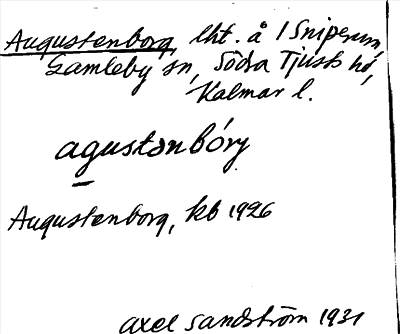 Augustenborg, lht. å 1 Sniperum,
Gamleby sn, Södra Tjusts hd,
Kalmar l.
agustənbóry
Augustenborg, kb 1926
Axel Sandström 1931